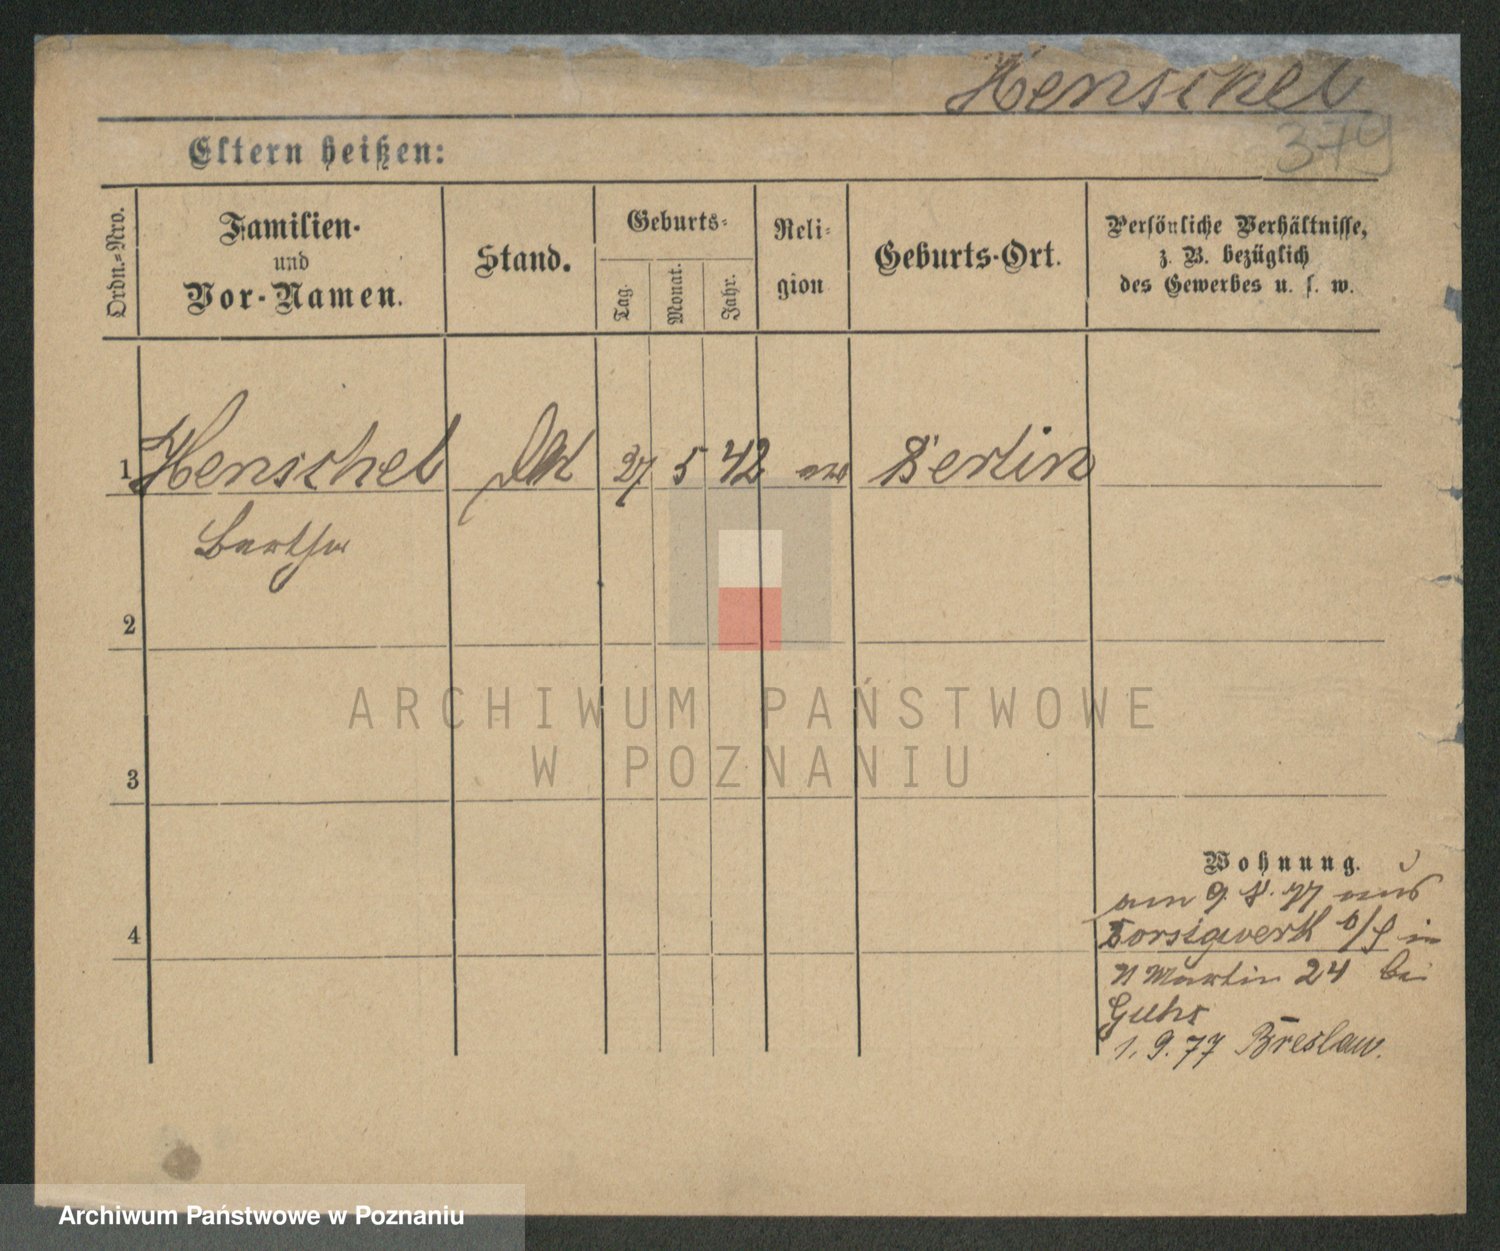 Henschel
379
Eltern heißen:
Ordn.-Nro.
Familien-
und
Vor-Namen.
Stand.
Geburts-
Tag.
Monat.
Jahr.
Reli-
gion
Geburts-Ort.
Persönliche Verhältnisse,
z. B. bezüglich
des Gewerbes u. s. w.
1 Henschel 27 5 42 Berlin
Bertha
2
ARCHIWUM PAŃSTWOWE
W POZNANIU
3
Wohnung.
am 9. 8. 77 aus
4 Borsigwerk o/S in
Martin 24 bei
Guhr
1. 9. 77 Breslau.
Archiwum Państwowe w Poznaniu